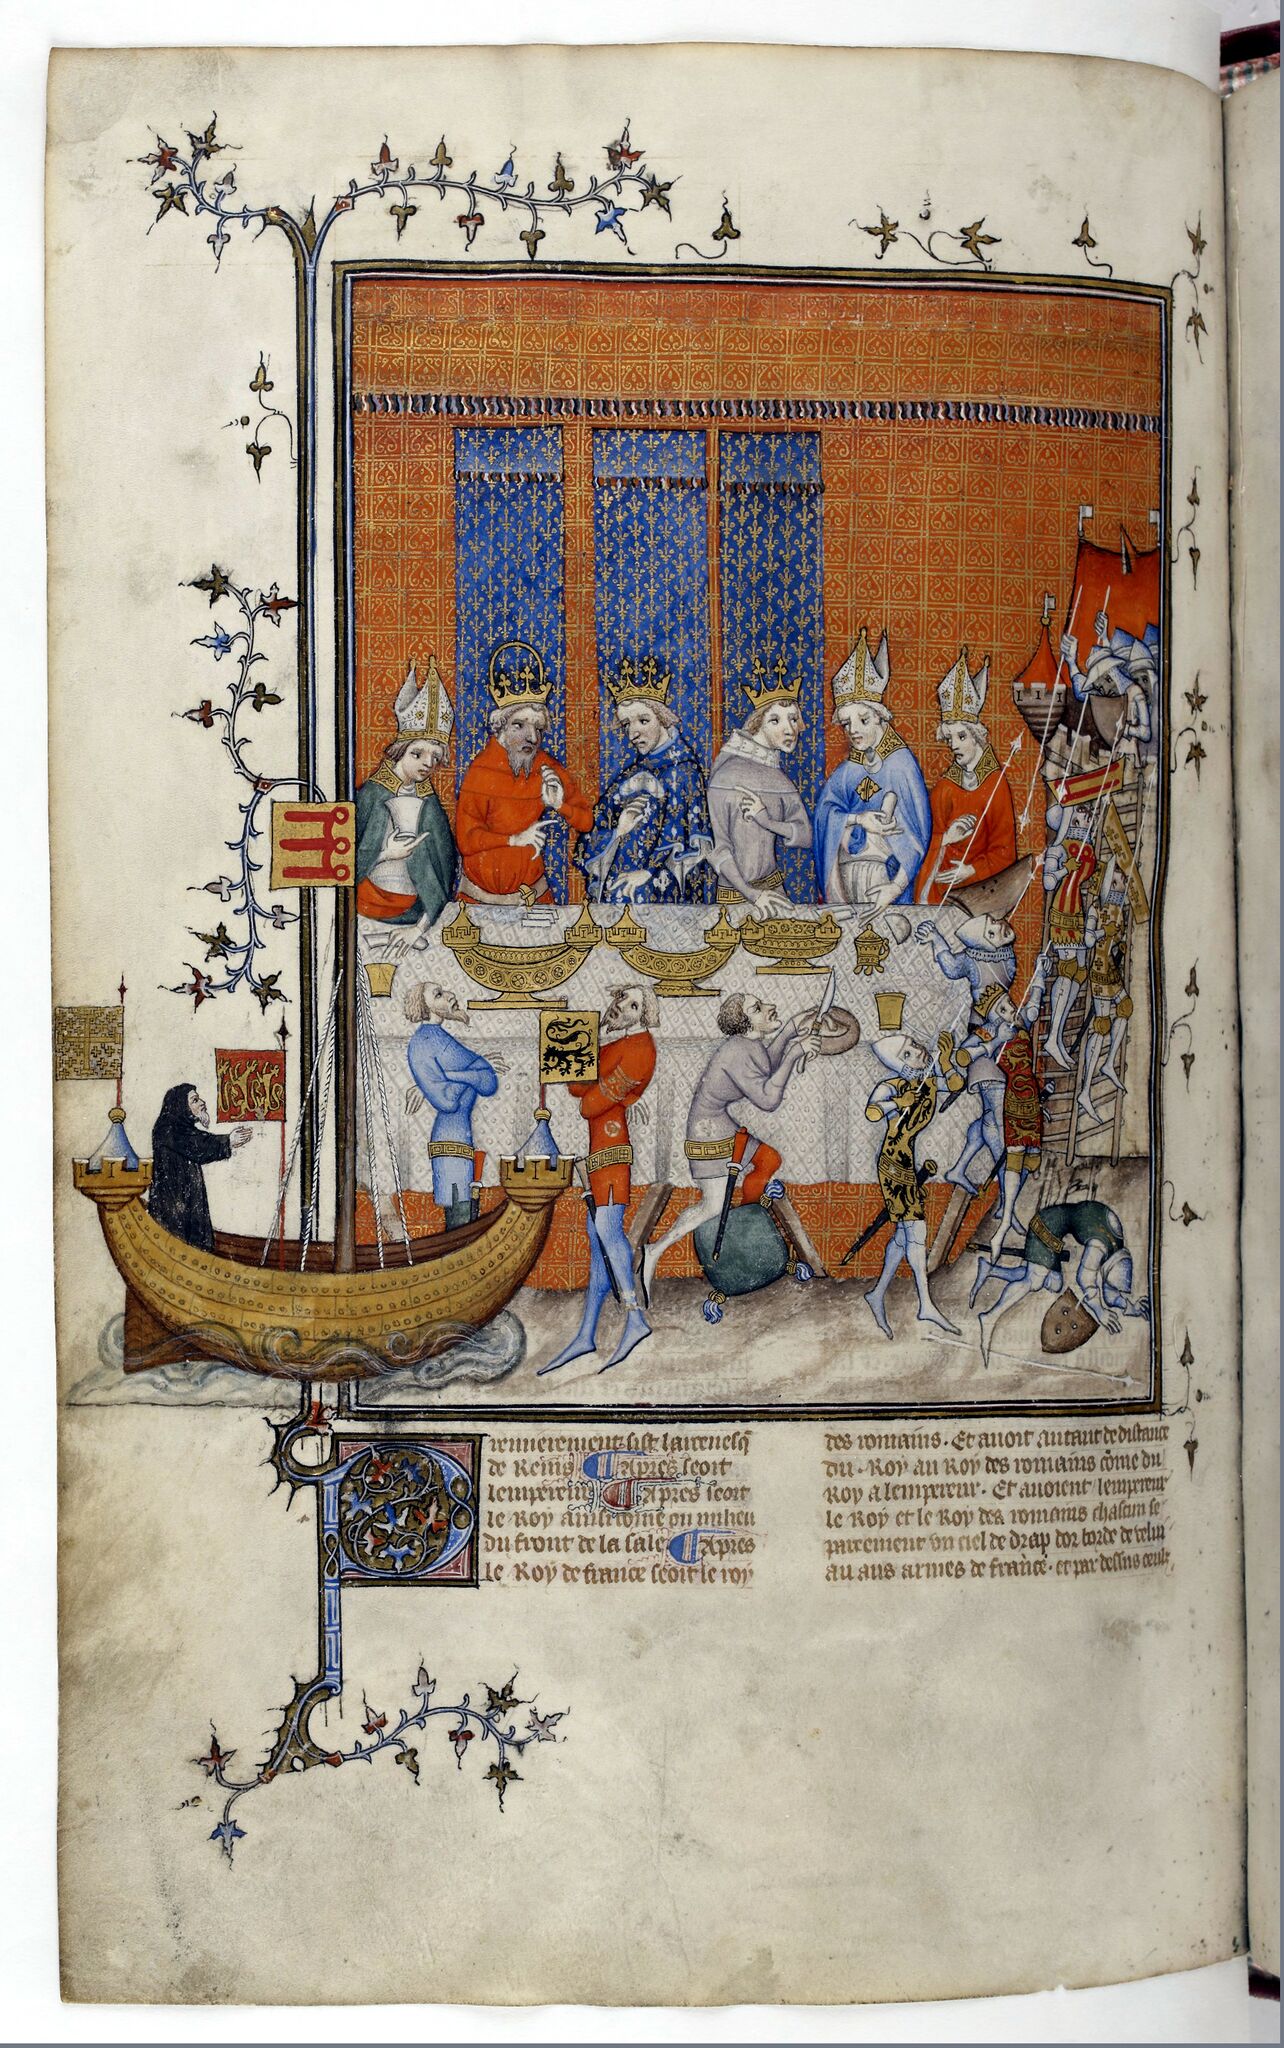 Premierement sist larcevesq
de Reins. Apres seoit
lempereur. Apres seoit
le Roy ainsi come ou milieu
du front de la sale. Apres
le Roy de france seoit le roy
des romains. Et auoit autant de distance
du Roy au Roy des romains cõme du
Roy a lempereur. Et auoient lempereur
le Roy et le Roy des romains chascun se
parement vn ciel de drap dor borde de velu
au aus armes de france. et par dessus ceulx